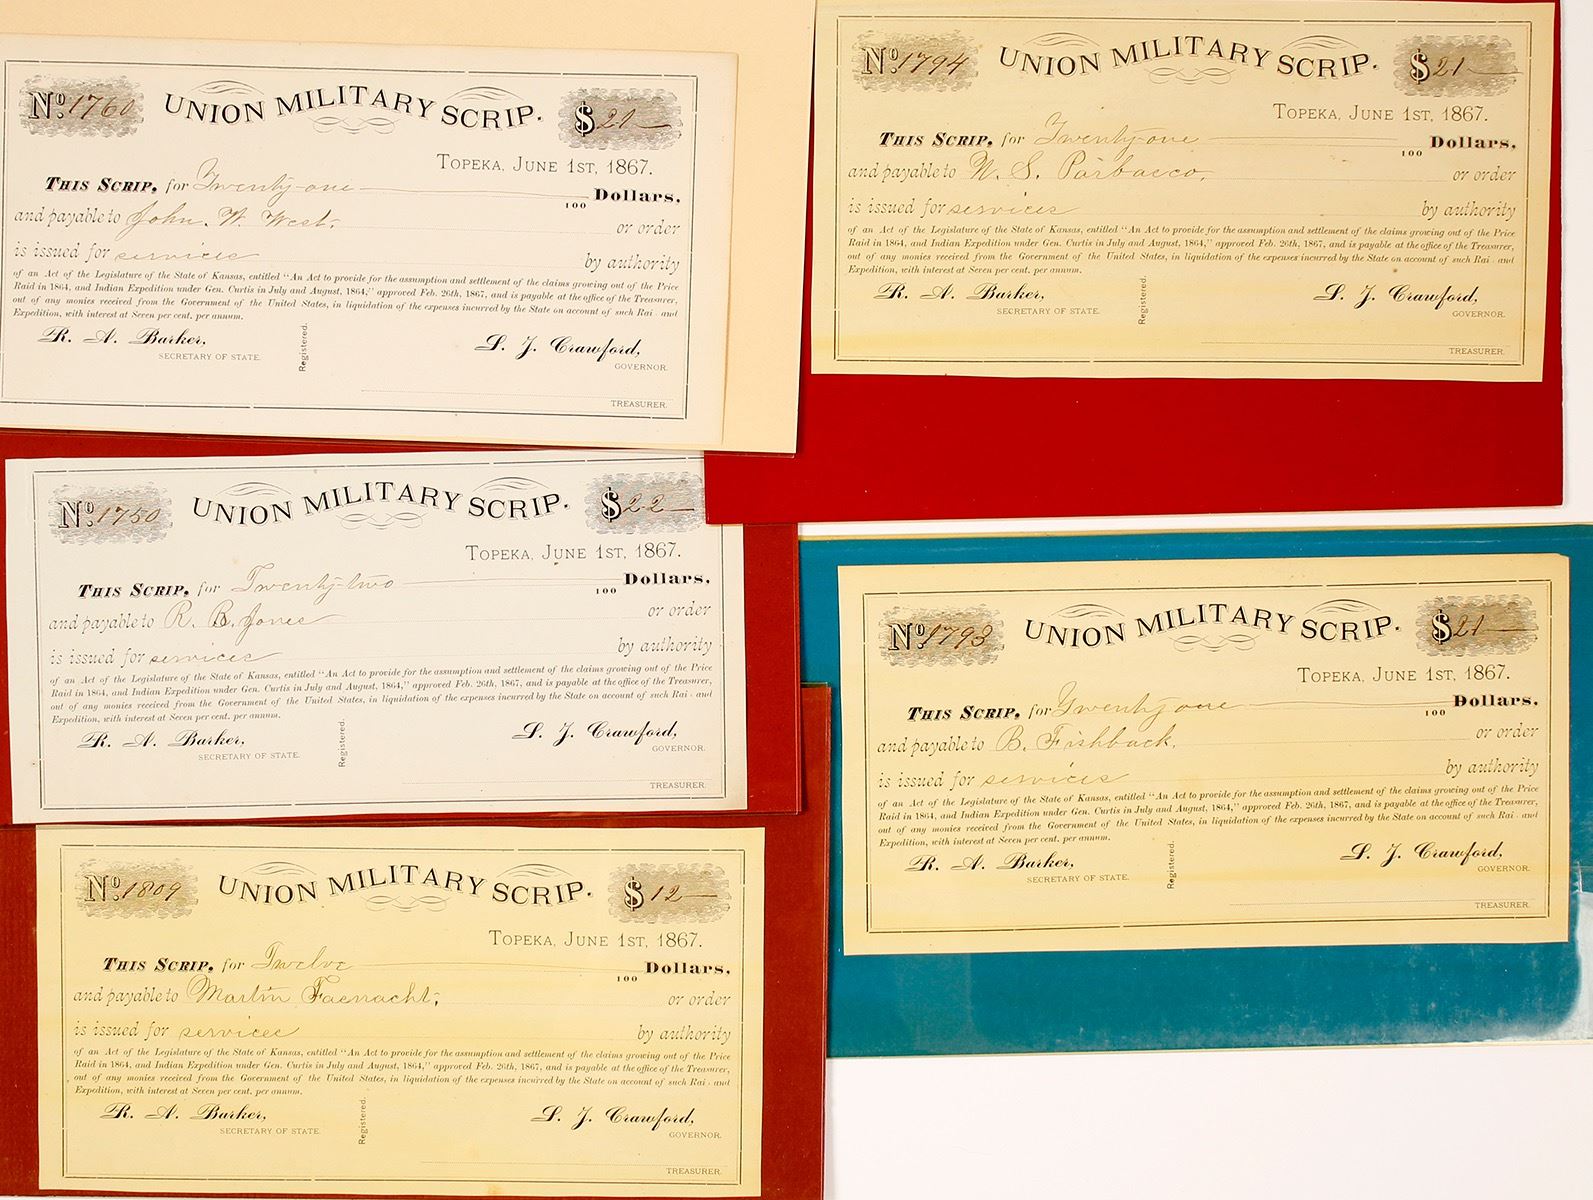 No. 1760 UNION MILITARY SCRIP. $21
TOPEKA, JUNE 1ST, 1867.
THIS SCRIP, for Twenty-one 100 Dollars,
and payable to John. W. West. or order
is issued for services by authority
of an Act of the Legislature of the State of Kansas, entitled "An Act to provide for the assumption and settlement of the claims growing out of the Price
Raid in 1864, and Indian Expedition under Gen. Curtis in July and August, 1864," approved Feb. 26th, 1867, and is payable at the office of the Treasurer,
out of any monies received from the Government of the United States, in liquidation of the expenses incurred by the State on account of such Rai and
Expedition, with interest at Seven per cent. per annum.
R. A. Barker, S. J. Crawford,
SECRETARY OF STATE. Registered. GOVERNOR.
TREASURER.
No. 1750 UNION MILITARY SCRIP. $22
TOPEKA, JUNE 1ST, 1867.
THIS SCRIP, for Twenty-two 100 Dollars,
and payable to R. B. Jones or order
is issued for services by authority
of an Act of the Legislature of the State of Kansas, entitled "An Act to provide for the assumption and settlement of the claims growing out of the Price
Raid in 1864, and Indian Expedition under Gen. Curtis in July and August, 1864," approved Feb. 26th, 1867, and is payable at the office of the Treasurer,
out of any monies received from the Government of the United States, in liquidation of the expenses incurred by the State on account of such Rai and
Expedition, with interest at Seven per cent. per annum.
R. A. Barker, S. J. Crawford,
SECRETARY OF STATE. Registered. GOVERNOR.
TREASURER.
No. 1809 UNION MILITARY SCRIP. $12
TOPEKA, JUNE 1ST, 1867.
THIS SCRIP, for Twelve 100 Dollars,
and payable to Martin Faenacht, or order
is issued for services by authority
of an Act of the Legislature of the State of Kansas, entitled "An Act to provide for the assumption and settlement of the claims growing out of the Price
Raid in 1864, and Indian Expedition under Gen. Curtis in July and August, 1864," approved Feb. 26th, 1867, and is payable at the office of the Treasurer,
out of any monies received from the Government of the United States, in liquidation of the expenses incurred by the State on account of such Rai and
Expedition, with interest at Seven per cent. per annum.
R. A. Barker, S. J. Crawford,
SECRETARY OF STATE. Registered. GOVERNOR.
TREASURER.
No. 1794 UNION MILITARY SCRIP. $21
TOPEKA, JUNE 1ST, 1867.
THIS SCRIP, for Twenty-one 100 Dollars,
and payable to N. S. Parbacco, or order
is issued for services by authority
of an Act of the Legislature of the State of Kansas, entitled "An Act to provide for the assumption and settlement of the claims growing out of the Price
Raid in 1864, and Indian Expedition under Gen. Curtis in July and August, 1864," approved Feb. 26th, 1867, and is payable at the office of the Treasurer,
out of any monies received from the Government of the United States, in liquidation of the expenses incurred by the State on account of such Rai and
Expedition, with interest at Seven per cent. per annum.
R. A. Barker, S. J. Crawford,
SECRETARY OF STATE. Registered. GOVERNOR.
TREASURER.
No. 1793 UNION MILITARY SCRIP. $21
TOPEKA, JUNE 1ST, 1867.
THIS SCRIP, for Twenty one 100 Dollars,
and payable to B. Fishback, or order
is issued for services by authority
of an Act of the Legislature of the State of Kansas, entitled "An Act to provide for the assumption and settlement of the claims growing out of the Price
Raid in 1864, and Indian Expedition under Gen. Curtis in July and August, 1864," approved Feb. 26th, 1867, and is payable at the office of the Treasurer,
out of any monies received from the Government of the United States, in liquidation of the expenses incurred by the State on account of such Rai and
Expedition, with interest at Seven per cent. per annum.
R. A. Barker, S. J. Crawford,
SECRETARY OF STATE. Registered. GOVERNOR.
TREASURER.